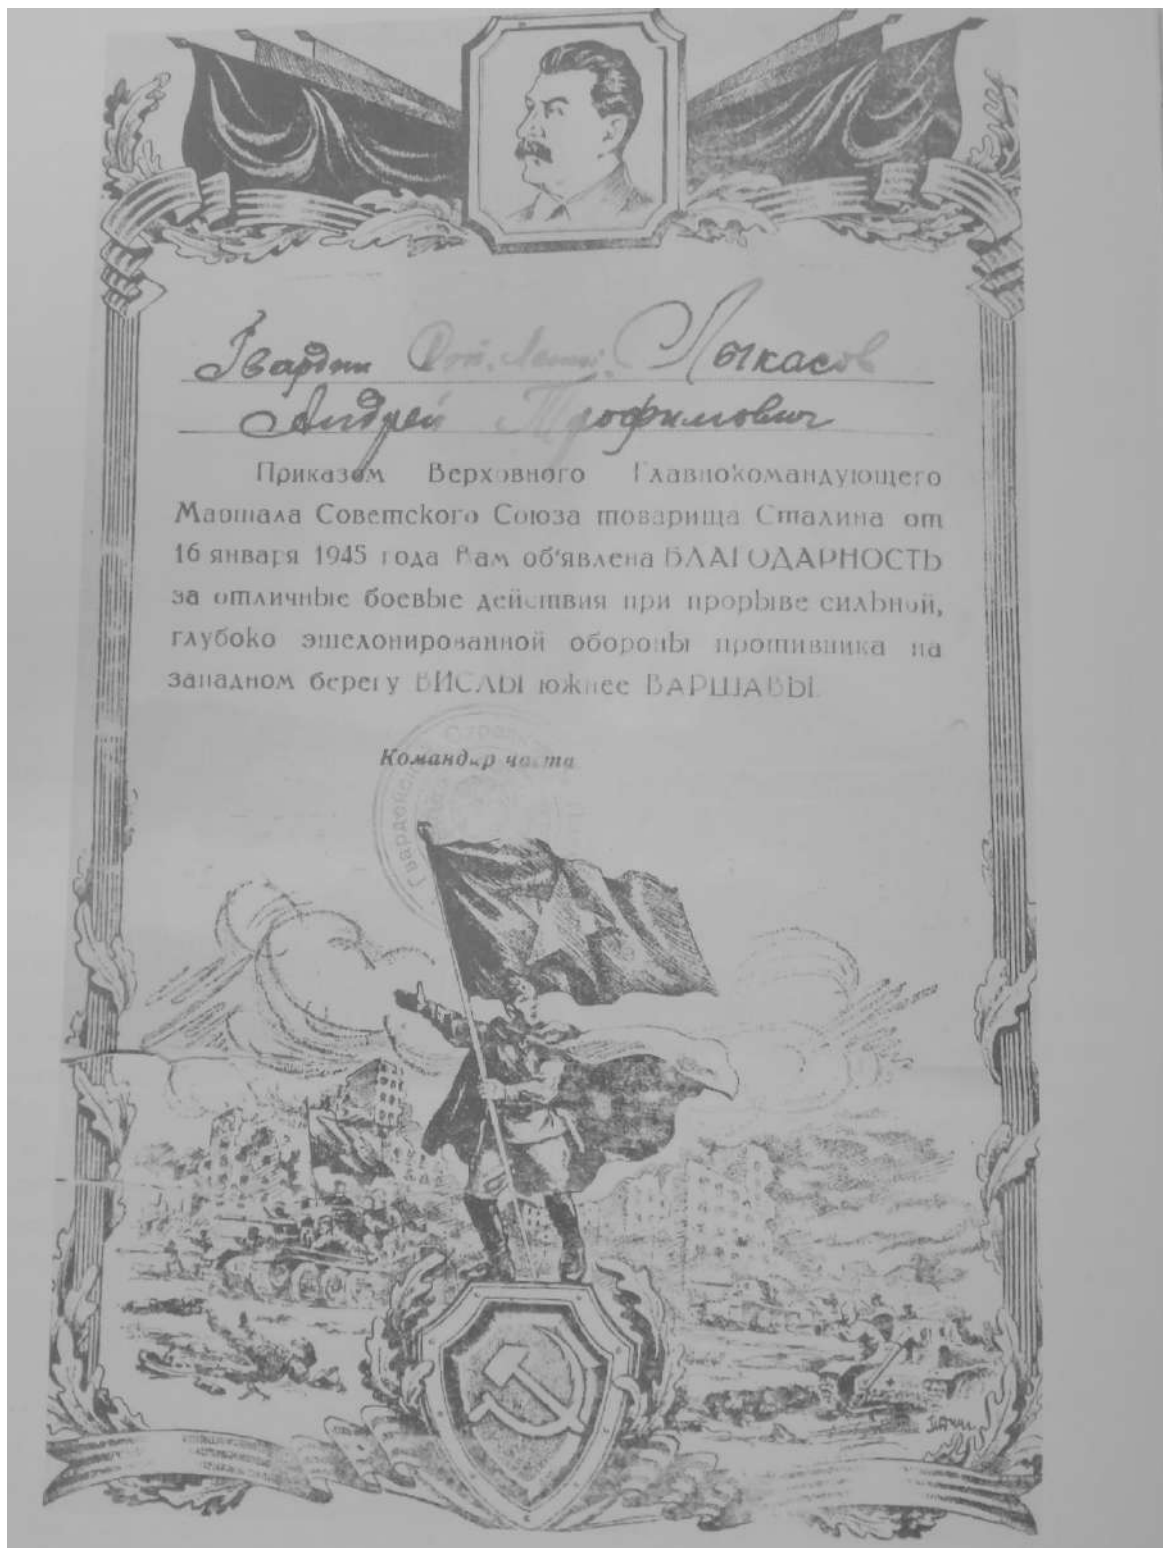 Гвардии Лыкасов
Андрей Трофимович
Приказом Верховного Главнокомандующего
Маршала Советского Союза товарища Сталина от
16 января 1945 года Вам об'явлена БЛАГОДАРНОСТЬ
за отличные боевые действия при прорыве сильной,
глубоко эшелонированной обороны противника на
западном берегу ВИСЛЫ южнее ВАРШАВЫ.
Командир части